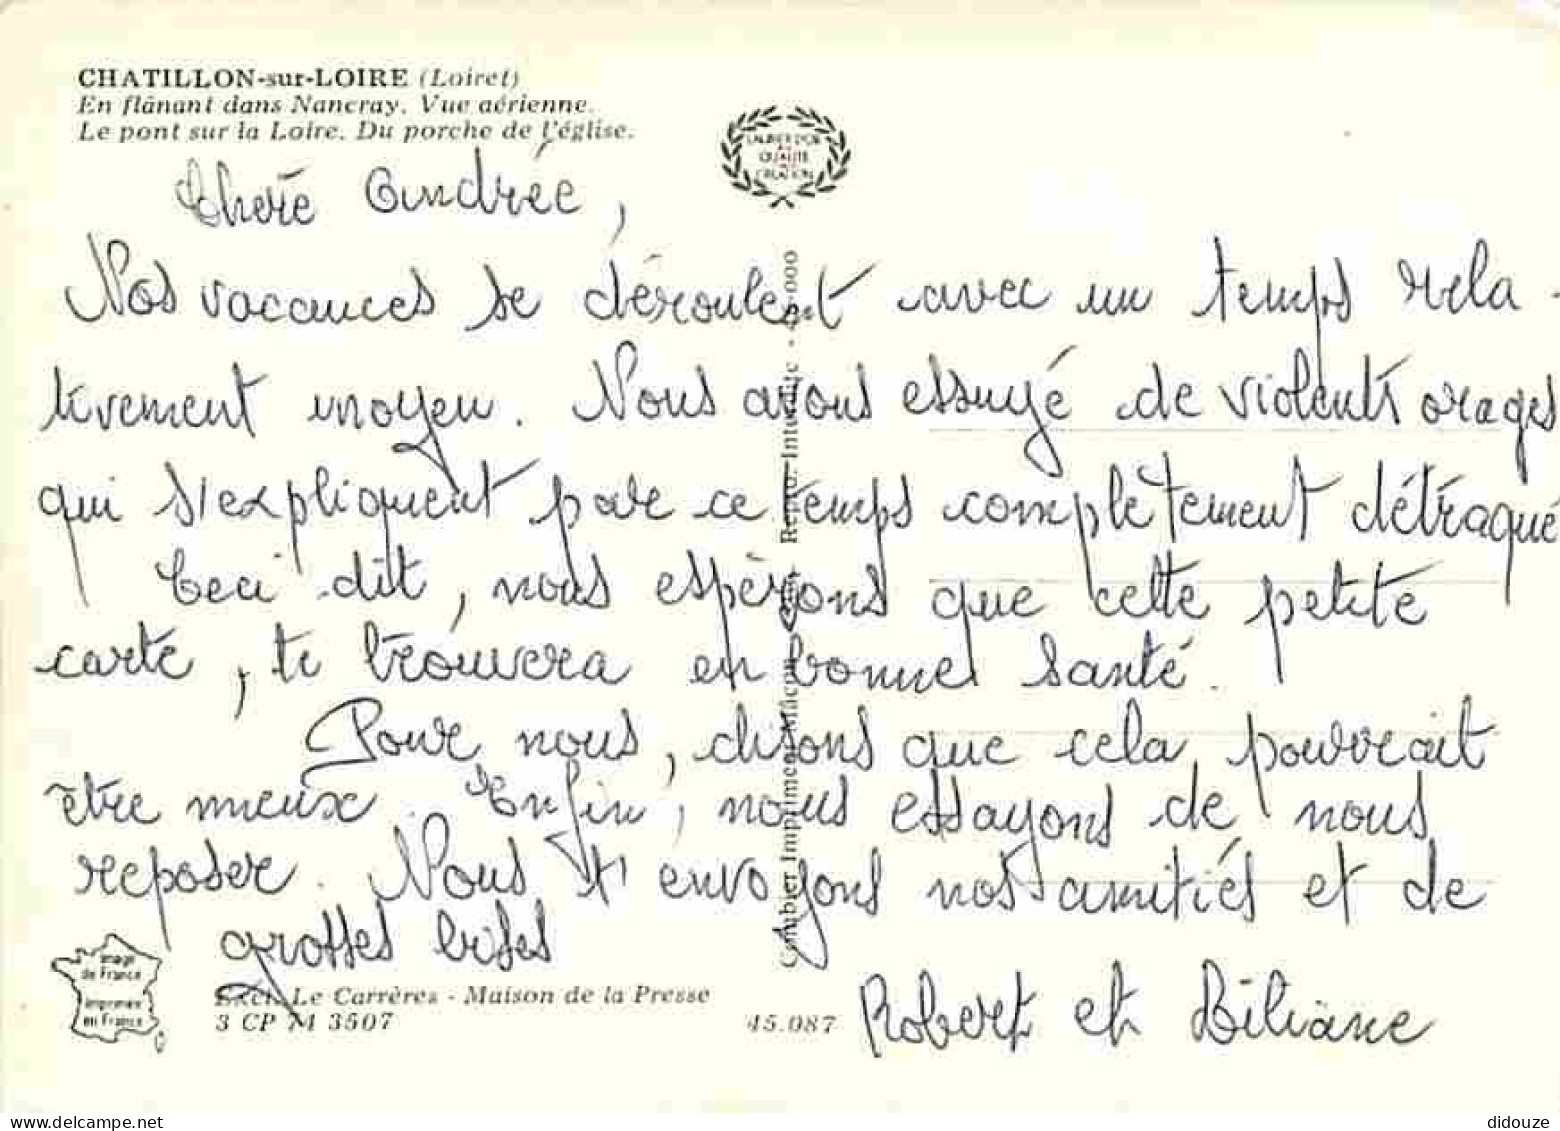 CHATILLON-sur-LOIRE (Loiret)
En flânant dans Nancray. Vue aérienne.
Le pont sur la Loire. Du porche de l'église.
LAURIER D'OR
QUALITÉ
CRÉATION
Chère Andrée,
Nos vacances se déroulent avec un temps rela-
tivement moyen. Nous avons essuyé de violents orages
qui s'expliquent par ce temps complètement détraqué
Ceci dit, nous espèrons que cette petite
carte, te trouvera en bonne santé.
Pour nous, disons que cela pourrait
être mieux. Enfin, nous essayons de nous
reposer. Nous t'envoyons nos amitiés et de
grosses bises
Robert et Liliane
Image
de France
imprimée
en France
Excl. Le Carrères - Maison de la Presse
3 CP M 3507
45.087
Combier Imprimeur Mâcon - Repro. Interdite
didouze